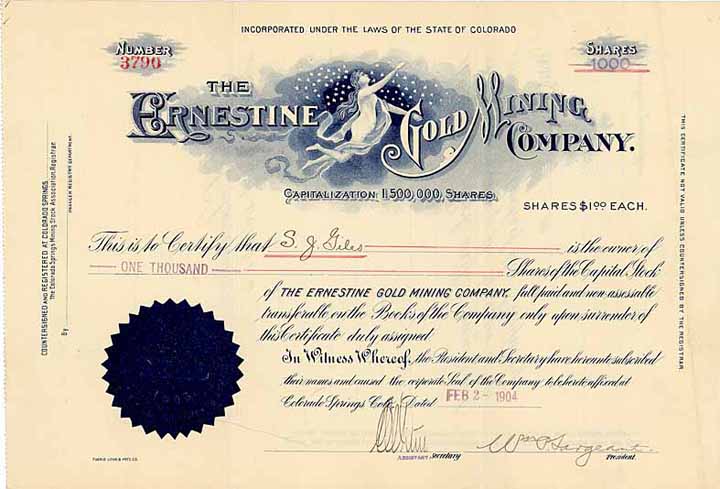 INCORPORATED UNDER THE LAWS OF THE STATE OF COLORADO
NUMBER
3790
SHARES
1000
THE
ERNESTINE GOLD MINING
COMPANY.
CAPITALIZATION, 1,500,000, SHARES.
SHARES $1.00 EACH.
This is to Certify that S. J. Giles is the owner of
ONE THOUSAND Shares of the Capital Stock
of THE ERNESTINE GOLD MINING COMPANY. full paid and non-assessable
transferable on the Books of the Company only upon surrender of
this Certificate duly assigned
In Witness Whereof, the President and Secretary have hereunto subscribed
their names and caused the corporate Seal of the Company to be hereto affixed at
Colorado Springs Colo. Dated FEB 2 - 1904
ASSISTANT Secretary
President.
COUNTERSIGNED AND REGISTERED AT COLORADO SPRINGS
the Colorado Springs Mining Stock Association, Registrar.
By MANAGER REGISTRY DEPARTMENT.
THIS CERTIFICATE NOT VALID UNLESS COUNTERSIGNED BY THE REGISTRAR